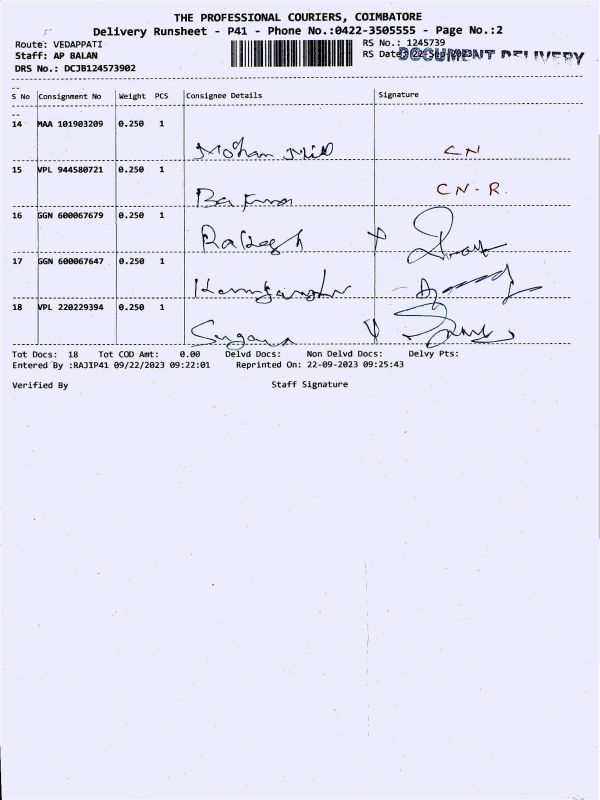 THE PROFESSIONAL COURIERS, COIMBATORE
Delivery Runsheet - P41 - Phone No.:0422-3505555 - Page No.:2
Route: VEDAPPATI
RS No.: 1245739
Staff: AP BALAN
RS Date: 22-Sep-2023
DOCUMENT DELIVERY
DRS No.: DCJB124573902
S No Consignment No Weight PCS Consignee Details Signature
14 MAA 101903209 0.250 1
Mohan Mill CN
15 VPL 944580721 0.250 1
CN-R.
16 GGN 600067679 0.250 1
Rakesh
17 GGN 600067647 0.250 1
18 VPL 220229394 0.250 1
Tot Docs: 18 Tot COD Amt: 0.00 Delvd Docs: Non Delvd Docs: Delvy Pts:
Entered By :RAJIP41 09/22/2023 09:22:01 Reprinted On: 22-09-2023 09:25:43
Verified By Staff Signature